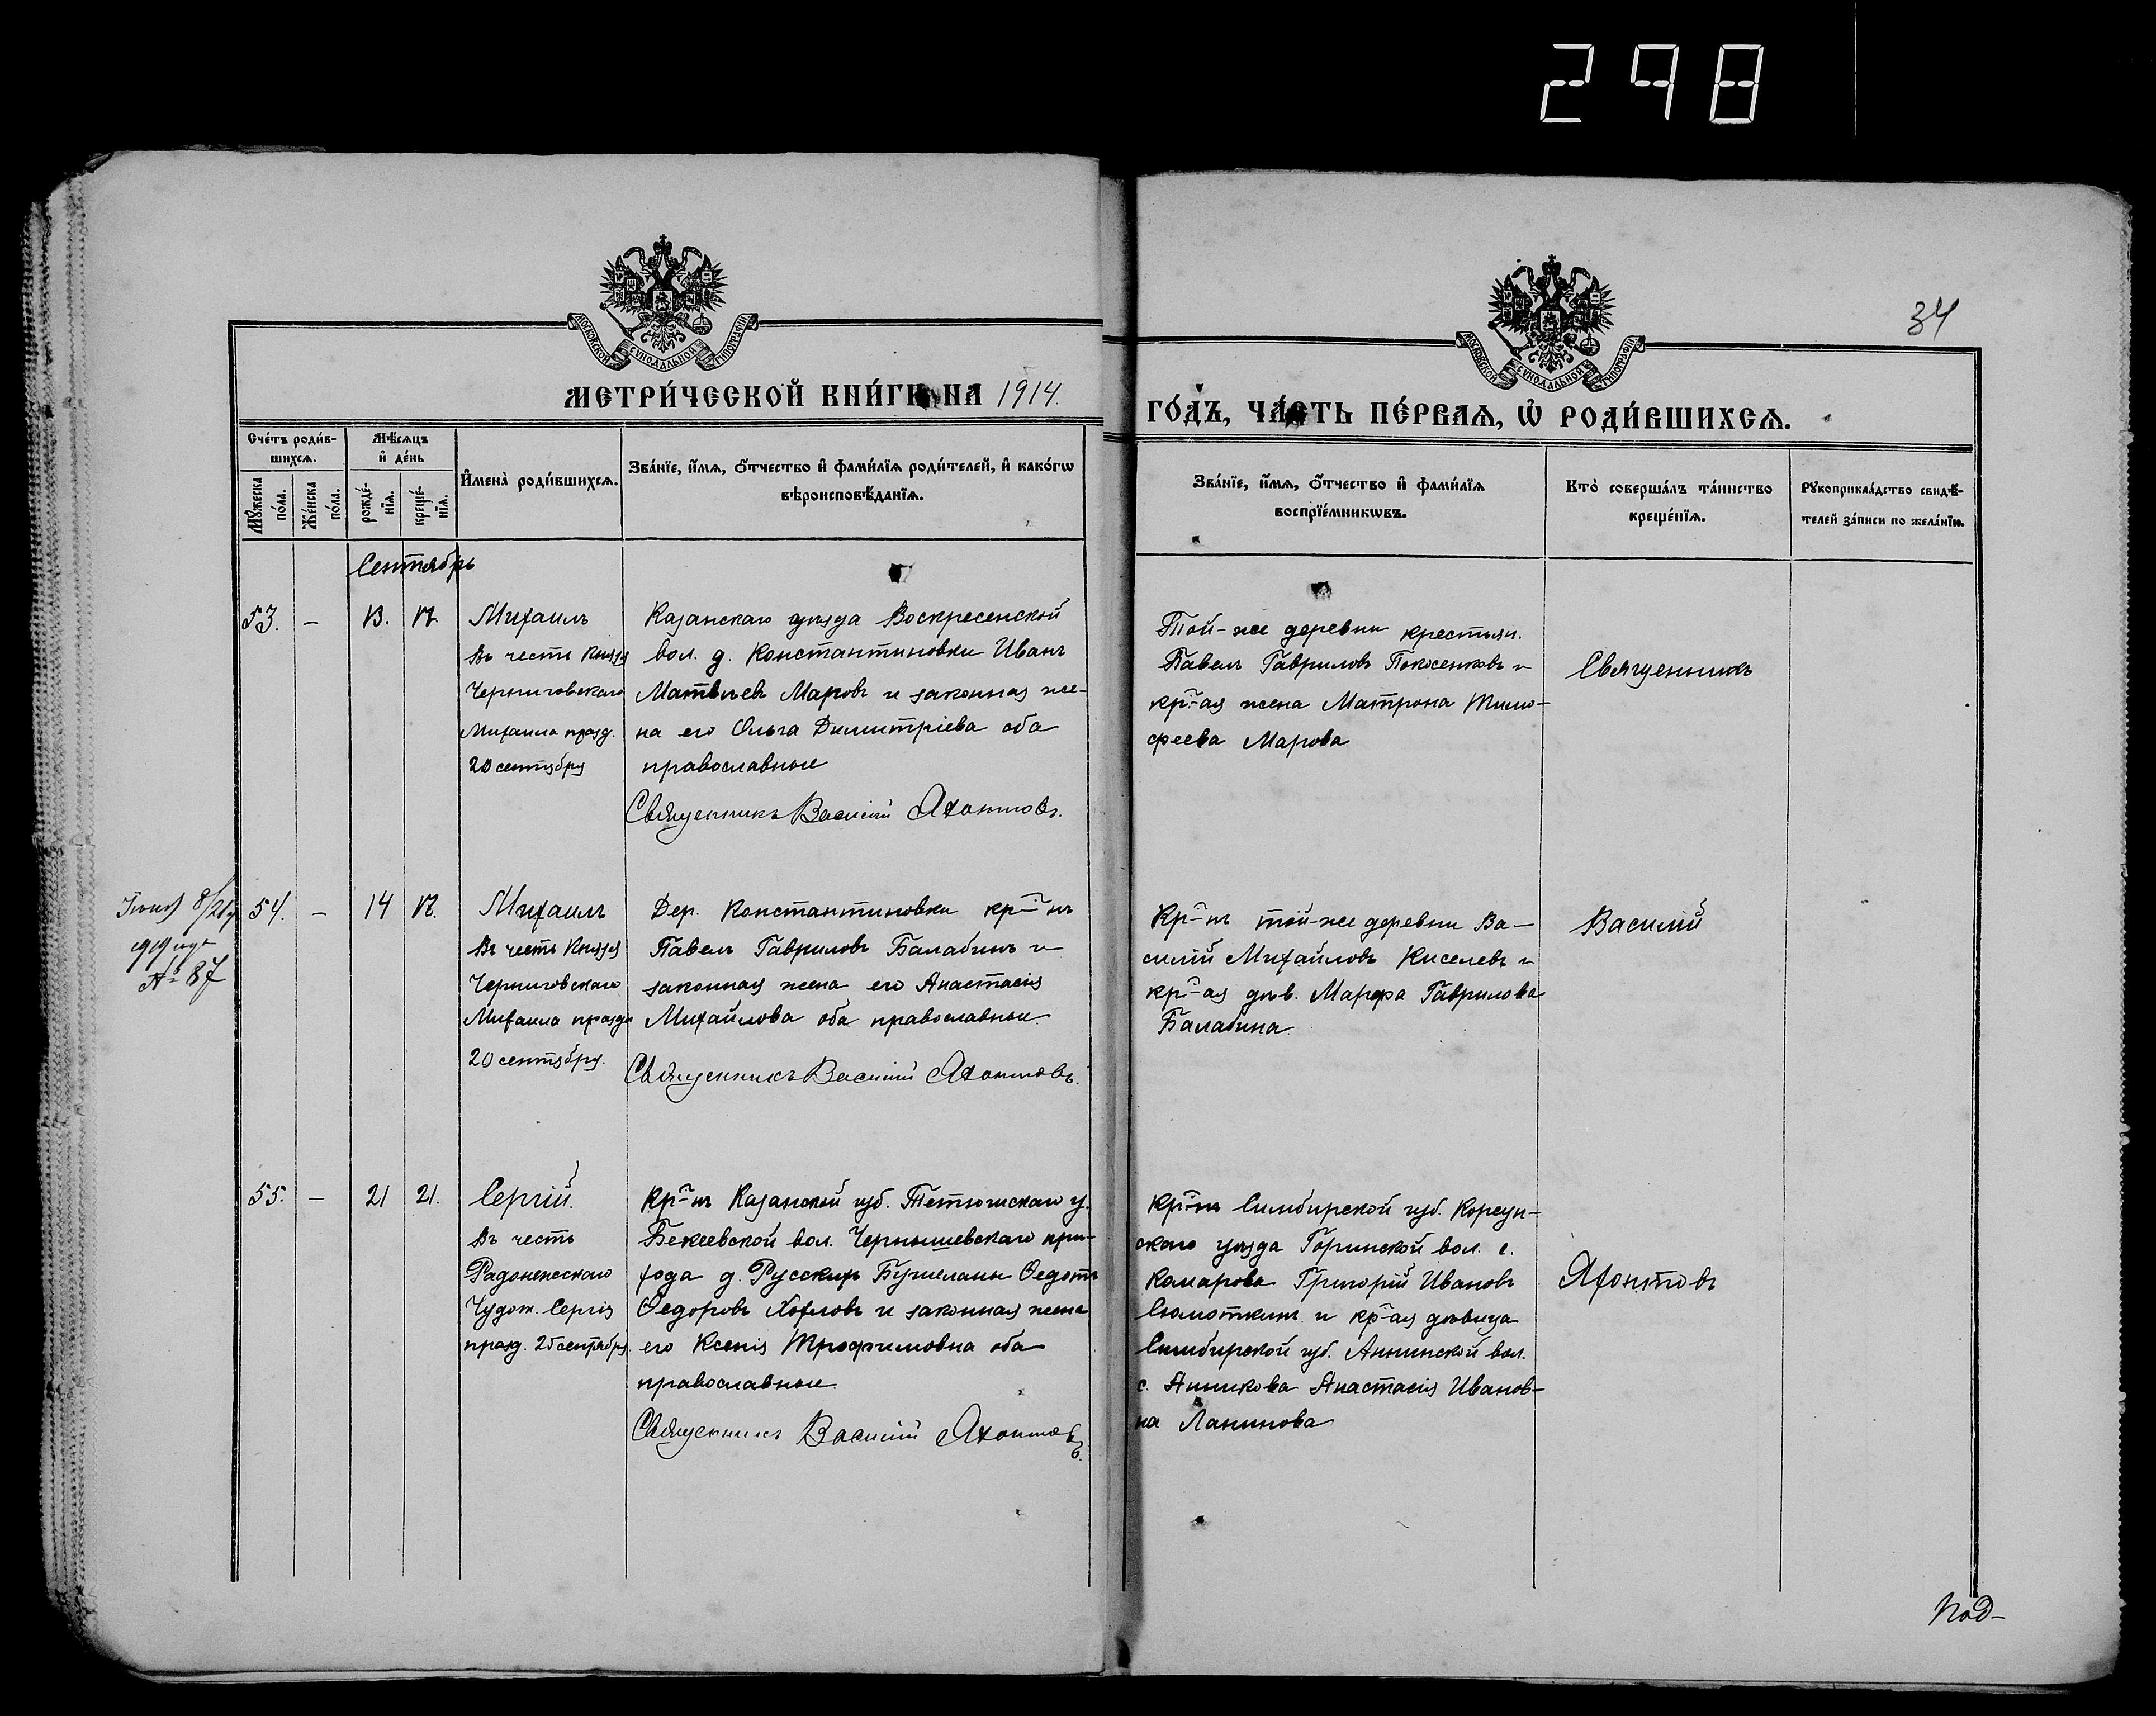 298
34
МОСКОВСКОЙ СѴНОДАЛЬНОЙ ТИПОГРАФІИ
МОСКОВСКОЙ СѴНОДАЛЬНОЙ ТИПОГРАФІИ
МЕТРИ́ЧЕСКОЙ КНИ́ГИ НА 1914.
ГО́ДЪ, ЧА́СТЬ ПЕ́РВАѦ, Ѡ҆ РОДИ́ВШИХСѦ.
Сче́тъ роди́в-
шихсѧ.
Мꙋ́жеска по́ла.
Же́нска по́ла.
Мѣ́сѧцъ
и҆ де́нь
рожде́-
нїѧ.
креще́-
нїѧ.
И҆мена̀ роди́вшихсѧ.
Зва́нїе, и҆́мѧ, ѻ҆́тчество и҆ фами́лїѧ роди́телей, и҆ како́гѡ
вѣроисповѣ́данїѧ.
Зва́нїе, и҆́мѧ, ѻ҆́тчество и҆ фами́лїѧ
воспрїе́мникѡвъ.
Кто̀ соверша́лъ та́инство
креще́нїѧ.
Рꙋкоприкла́дство свидѣ́-
телей за́писи по жела́нїю.
Сентябрь
53. – 13. 17
Михаилъ
Въ честь Князя
Черниговскаго
Михаила празд.
20 сентября
Казанскаго уѣзда Воскресенской
вол. д. Константиновки Иванъ
Матвѣевъ Маровъ и законная же-
на его Ольга Димитріева оба
православные
Священникъ Василій Яхонтовъ.
Той-же деревни крестьян.
Павелъ Гавриловъ Покосенковъ и
кр-ая жена Матрона Тимо-
феева Марова
Священникъ
8/21
1919 года
№ 87
54. – 14 17.
Михаилъ
Въ честь Князя
Черниговскаго
Михаила празд
20 сентября.
Дер. Константиновки кр-нъ
Павелъ Гавриловъ Балабинъ и
законная жена его Анастасія
Михайлова оба православные.
Священникъ Василій Яхонтовъ.
Кр-нъ той-же деревни Ва-
силій Михайловъ Киселевъ и
кр-ая дѣв. Марфа Гаврилова
Балабина.
Василій
55. – 21 21.
Сергій.
Въ честь
Радонежскаго
Чудот. Сергія
празд. 25 сентября.
Кр-нъ Казанской губ. Тетюшскаго у.
Бекеевской вол. Чернышевскаго при-
хода д. Русскихъ Ѳедотъ
Ѳедоровъ Хохловъ и законная жена
его Ксенія Трофимовна оба
православные.
Священникъ Василій Яхонтовъ.
Кр-нъ Симбирской губ. Корсун-
скаго уѣзда Горинской вол. с.
Комарова Григорій Ивановъ
и кр-ая дѣвица
Симбирской губ. Аннинской вол.
с. Анненкова Анастасія Иванов-
на Ланинова
Яхонтовъ
Под-